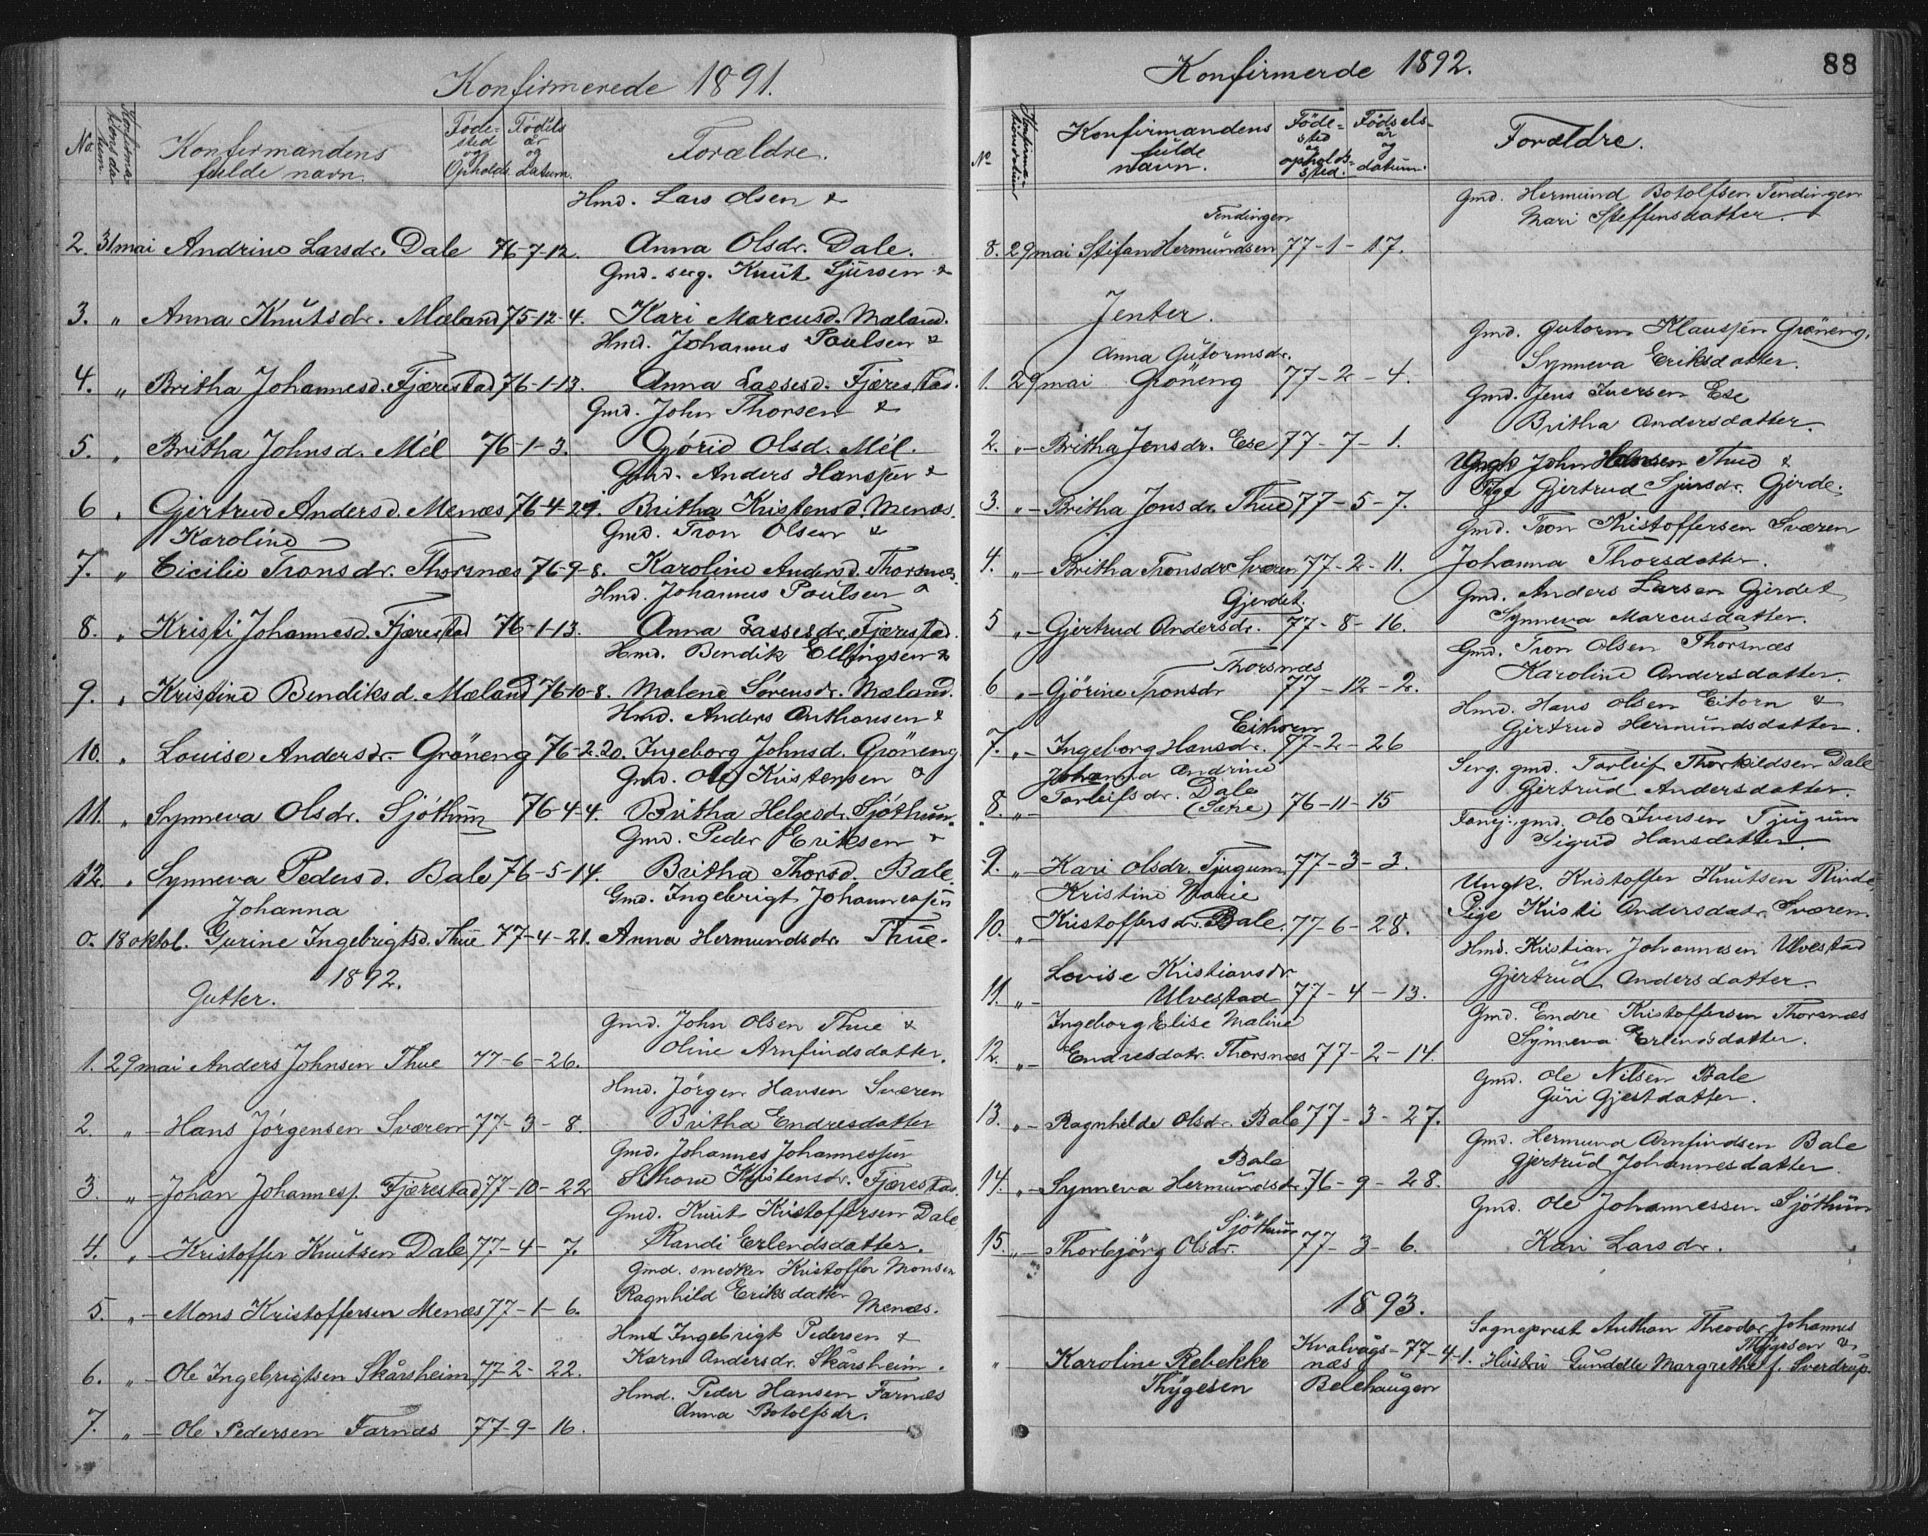 Konfirmerede 1891.
No.
Konfirma-
tions da-
tum.
Konfirmandens
fulde navn.
Føde-
sted
og
Opholds.
Fødsels
år
og
datum.
Forældre.
Hmd. Lars Olsen &
2. 31 mai Andrine Larsdr. Dale 76-7-12. Anna Olsdr. Dale.
Gmd. serg. Knut Sjursen &
3. " Anna Knutsdr. Mæland 75-12-4. Kari Marcusd. Mæland.
Hmd. Johannes Poulsen &
4. " Britha Johannesd. Fjærestad 76-1-13. Anna Lassesd. Fjærestad.
Gmd. John Thorsen &
5. " Britha Johnsd. Mél 76-1-3. Gjórid Olsd. Mél.
Gmd. Anders Hansen &
6 " Gjertrud Andersd. Menæs 76-4-29. Britha Kristensd. Menæs.
Karoline Gmd. Tron Olsen &
7. " Cicilie Tronsdr. Thorsnæs 76-9-8. Karoline Andersd. Thorsnæs.
Hmd. Johannes Poulsen &
8. " Kristi Johannesd. Fjærestad 76-1-13. Anna Lassesdr. Fjærestad.
Hmd. Bendik Ellingsen &
9. " Kristine Bendiksd. Mæland 76-10-8. Malene Sørensdr. Mæland.
Hmd. Anders Anthonsen &
10. " Louise Andersdr. Gröneng 76-2-20. Ingeborg Johnsd. Gröneng
Gmd. Ole Kristensen &
11. " Synneva Olsdr. Sjóthun 76-4-4. Britha Helgesdr. Sjóthun.
Gmd. Peder Eriksen &
12. " Synneva Pedersd. Bale 76-5-14. Britha Thorsd. Bale.
Johanna Gmd. Ingebrigt Johannessen
0. 18 oktbl. Gurine Ingebrigtsd. Thue 77-4-21. Anna Hermundsdr. Thue.
1892.
Gutter.
Gmd. John Olsen Thue &
1. 29 mai Anders Johnsen Thue 77-6-26. Oline Arnfindsdatter.
Hmd. Jörgen Hansen Sværen
2. " Hans Jörgensen Sværen 77-3-8. Britha Endresdatter
Gmd. Johannes Johannessen
3. " Johan Johanness. Fjærestad 77-10-22 Kristensdr. Fjærestad.
Gmd. Knut Kristoffersen Dale
4. " Kristoffer Knutsen Dale 77-4-7. Randi Erlendsdatter.
Gmd. snedker Kristoffer Monsen
5. " Mons Kristoffersen Menæs 77-1-6. Ragnhild Eriksdatter Menæs.
Hmd Ingebrigt Pedersen &
6. " Ole Ingebrigtsen Skårsheim 77-2-22. Karn Andersdr. Skårsheim.
Hmd. Peder Hansen Farnæs
7. " Ole Pedersen Farnæs 77-9-16. Anna Botolfsdr.
88
Konfirmerde 1892.
No
Konfirma-
tionsdatum
Konfirmandens
fulde
navn.
Føde-
sted
og
opholds-
sted.
Fødsels-
år
og
datum.
Forældre.
Gmd. Hermund Botolfsen Tendingen
Tendingen Mari Steffensdatter.
8. 29 mai Stefan Hermundsen 77-1-17.
Jenter.
Gmd. Gutorm Klausjen Gröneng.
Anna Gutormsdr. Synneva Eriksdatter.
1. 29 mai Gröneng 77-2-4.
Gmd. Jens Iversen Ese
Britha Andersdatter.
2. " Britha Jensdr. Ese 77-7-1.
Ungk. John Thue &
3. " Britha Jonsdr. Thue 77-5-7. Pige Gjertrud Sjursdr. Gjerde.
Gmd. Tron Kristoffersen Sværen
4. " Britha Tronsdr Sværen 77-2-11. Johanna Thorsdatter.
Gjerdet. Gmd. Anders Larsen Gjerdet
5 " Gjertrud Andersdr. 77-8-16. Synneva Marcusdatter.
Gmd. Tron Olsen Thorsnæs
Thorsnæs Karoline Andersdatter.
6 " Gjörine Tronsdr 77-12-2.
Hmd. Hans Olsen Eitorn &
Eithorn Gjertrud Hermundsdatter.
7. " Ingeborg Hansdr. 77-2-26
Johanna Andrine Serg. gmd. Torleif Thorkildsen Dale
8. " Torleifsdr. Dale 76-11-15 Gjertrud Andersdatter.
Fanej. gmd. Ole Iversen Tjugum
Sigrid Hansdatter.
9. " Kari Olsdr. Tjugum 77-3-3.
Kristine Marie Ungk. Kristoffer Knutsen Rinde
10. " Kristoffersdr. Bale. 77-6-28. Pige Kristi Andersdatr. Sværen.
Hmd. Kristian Johannesen Ulvestad
Lovise Kristiansdr Gjertrud Andersdatter.
11. " Ulvestad 77-4-13.
Gmd. Endre Kristoffersen Thorsnæs
Ingeborg Elise Maline Synneva Erlendsdatter.
12. " Endresdatr. Thorsnæs 77-2-14.
Gmd. Ole Nilsen Bale
Guri Gjestdatter.
13. " Ragnhilde Olsdr. Bale 77-3-27.
Gmd. Hermund Arnfindsen Bale
Bale Gjertrud Johannesdatter.
14. " Synneva Hermundsdr 76-9-28.
Gmd. Ole Johannessen Sjöthun
Sjöthun
15. " Thorbjörg Olsdr. 77-3-6. Kari Larsdr.
1893.
Sogneprest Anthon Theodor Johannes
Thygesen &
" Karoline Rebekke Kvalvågs- 77-4-1. Hustru Gundelle Margrethe f. Sverdrup.
Thygesen næs
Belehaugen